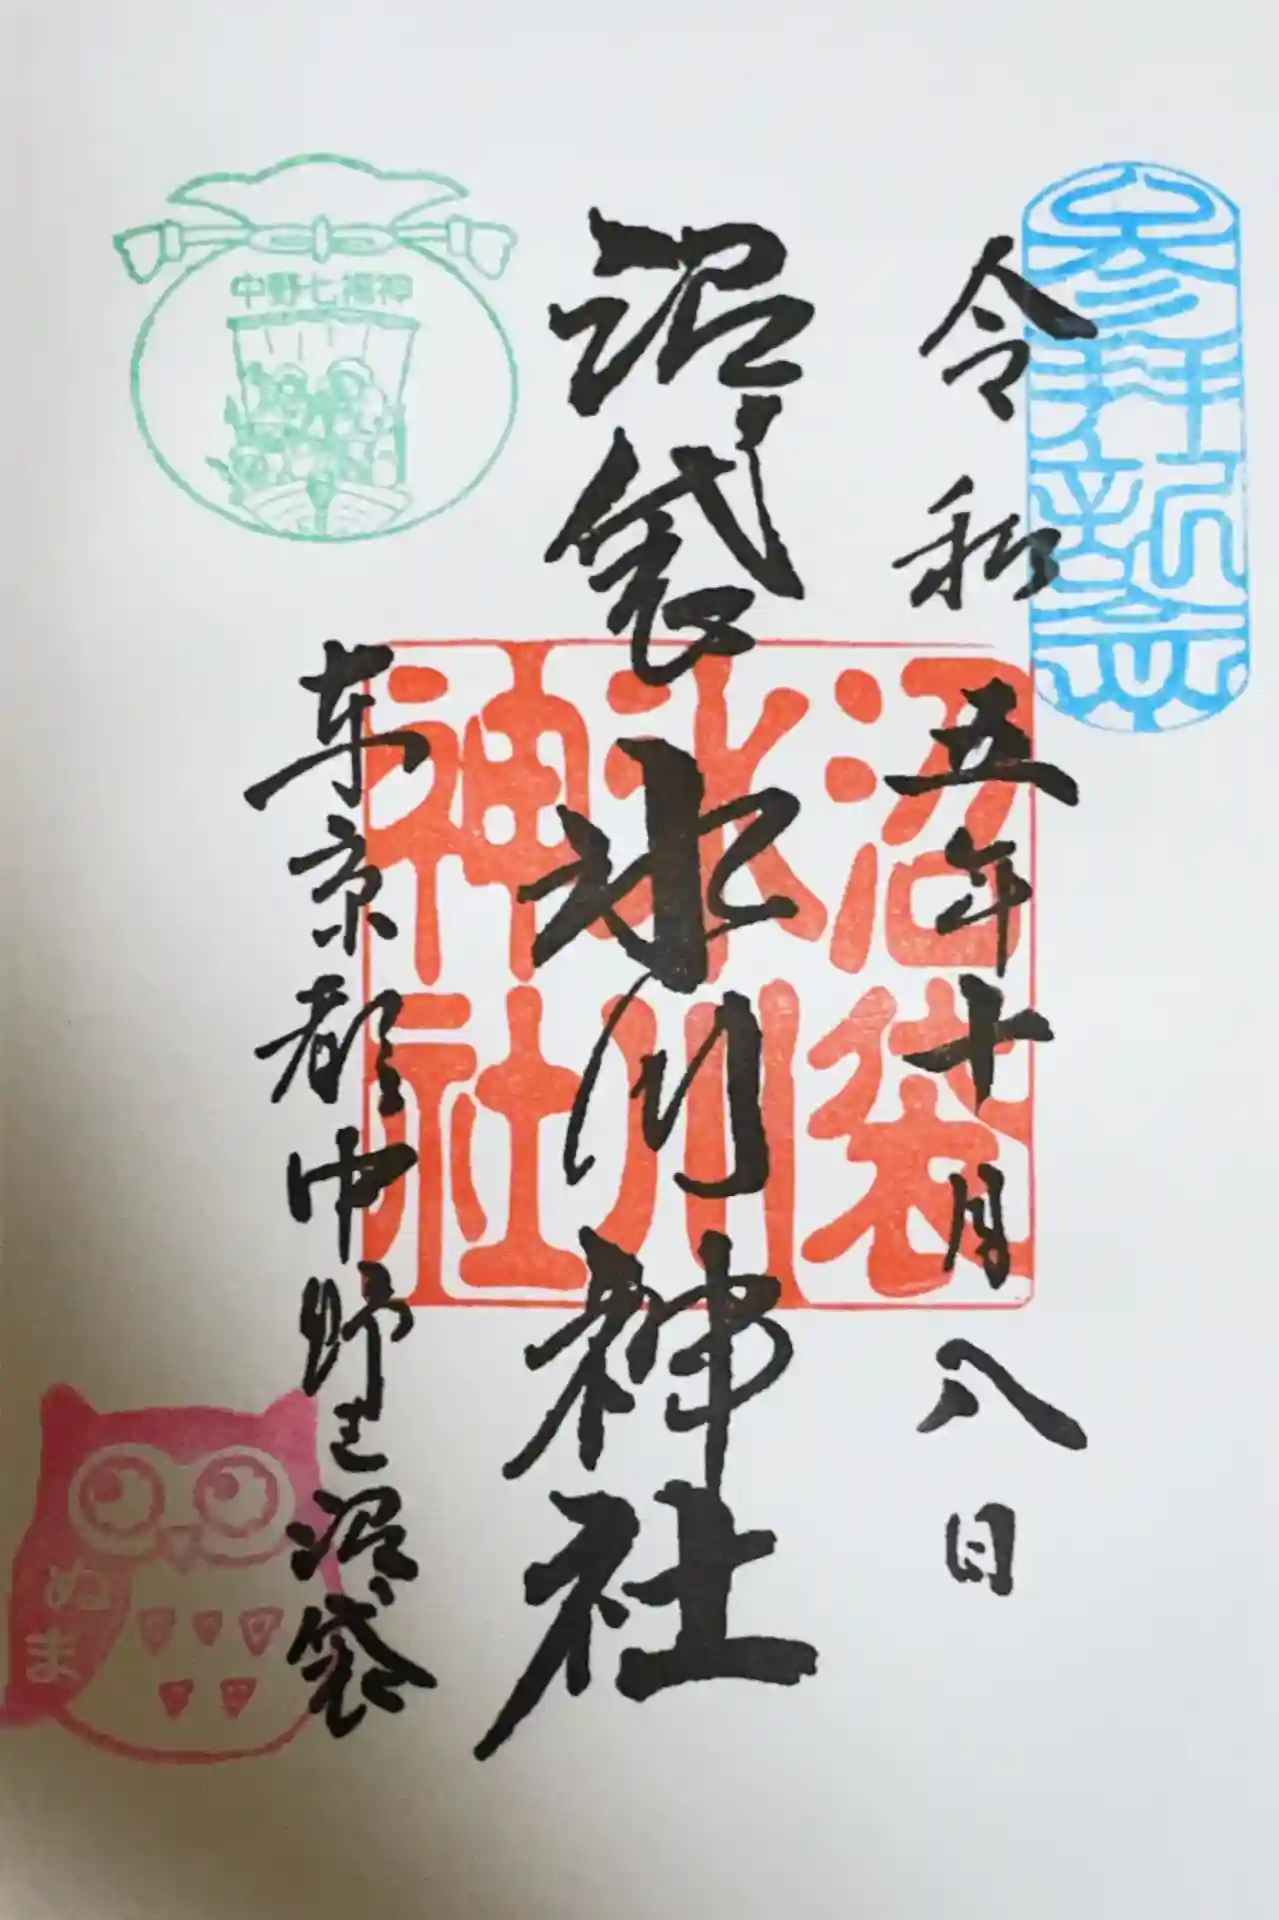 参拝記念
令和五年十月八日
沼袋氷川神社
沼袋
氷川
神社
東京都中野区沼袋
中野七福神
ぬま